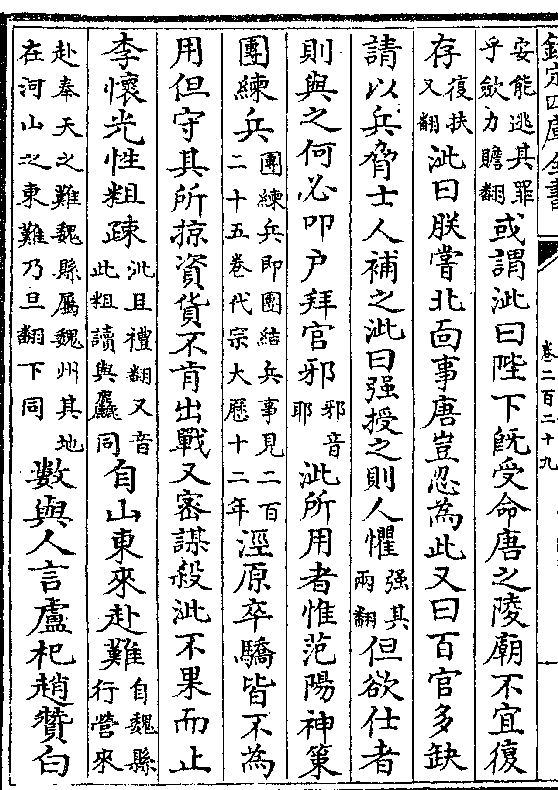 欽定四庫全書 卷二百二十九
安能逃其罪乎歛力贍翻或謂泚曰陛下既受命唐之陵廟不宜復
存復扶又翻泚曰朕嘗北面事唐豈忍為此又曰百官多缺
請以兵脅士人補之泚曰强授之則人懼强其兩翻但欲仕者
則與之何必叩户拜官邪邪音耶泚所用者惟范陽神策
團練兵團練兵即團結兵事見二百二十五卷代宗大厯十二年涇原卒驕皆不為
用但守其所掠資貨不肯出戰又密謀殺泚不果而止
李懷光性粗疎泚且禮翻又音此粗讀與麤同自山東來赴難自魏縣行營來
赴奉天之難魏縣屬魏州其地在河山之東難乃旦翻下同數與人言盧杞趙贊白